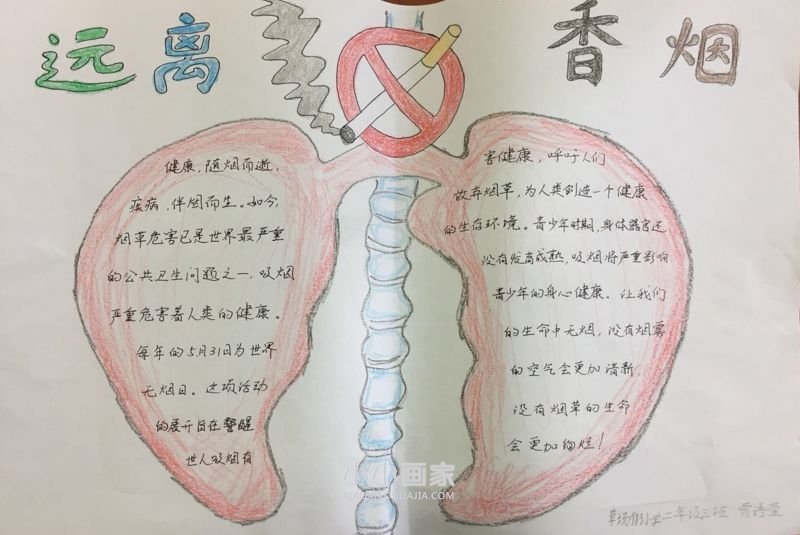 远离香烟
健康，随烟而逝，
疾病，伴烟而生。如今，
烟草危害已是世界最严重
的公共卫生问题之一，吸烟
严重危害着人类的健康。
每年的5月31日为世界
无烟日。这项活动
的展开旨在警醒
世人吸烟有
害健康，呼吁人们
放弃烟草，为人类创造一个健康
的生存环境。青少年时期，身体器官还
没有发育成熟，吸烟将严重影响
青少年的身心健康。让我们
的生命中无烟，没有烟雾
的空气会更加清新，
没有烟草的生命
会更加绚烂！
小小画家
草场街小学二年级三班